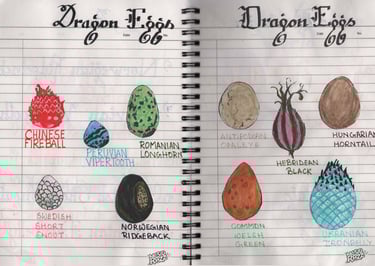 Dragon Eggs
CHINESE
FIREBALL
PERUVIAN
VIPERTOOTH
ROMANIAN
LONGHORN
SWEDISH
SHORT
SNOUT
NORWEGIAN
RIDGEBACK
Dragon Eggs
ANTIPODEAN
OPALEYE
HEBRIDEAN
BLACK
HUNGARIAN
HORNTAIL
COMMON
WELSH
GREEN
UKRANIAN
IRONBELLY